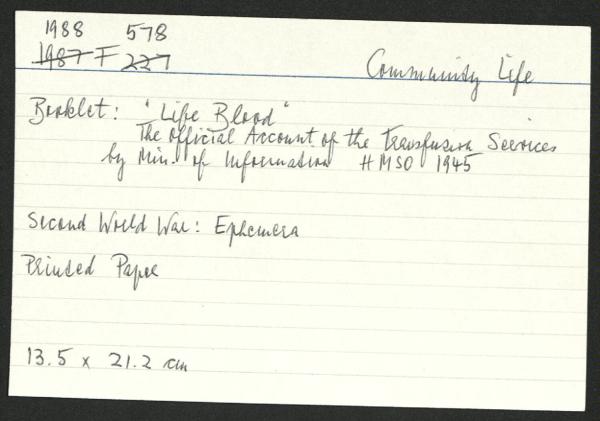 1988 578
1987 F 227
Community Life
Booklet: "Life Blood"
The Official Account of the Transfusion Services
by Min. of Information HMSO 1945
Second World War: Ephemera
Printed Paper
13.5 x 21.2 cm